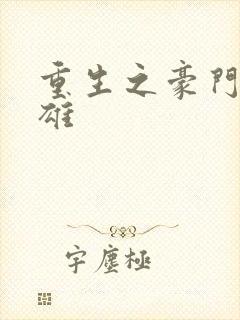 重生之豪門
雄
宇塵極